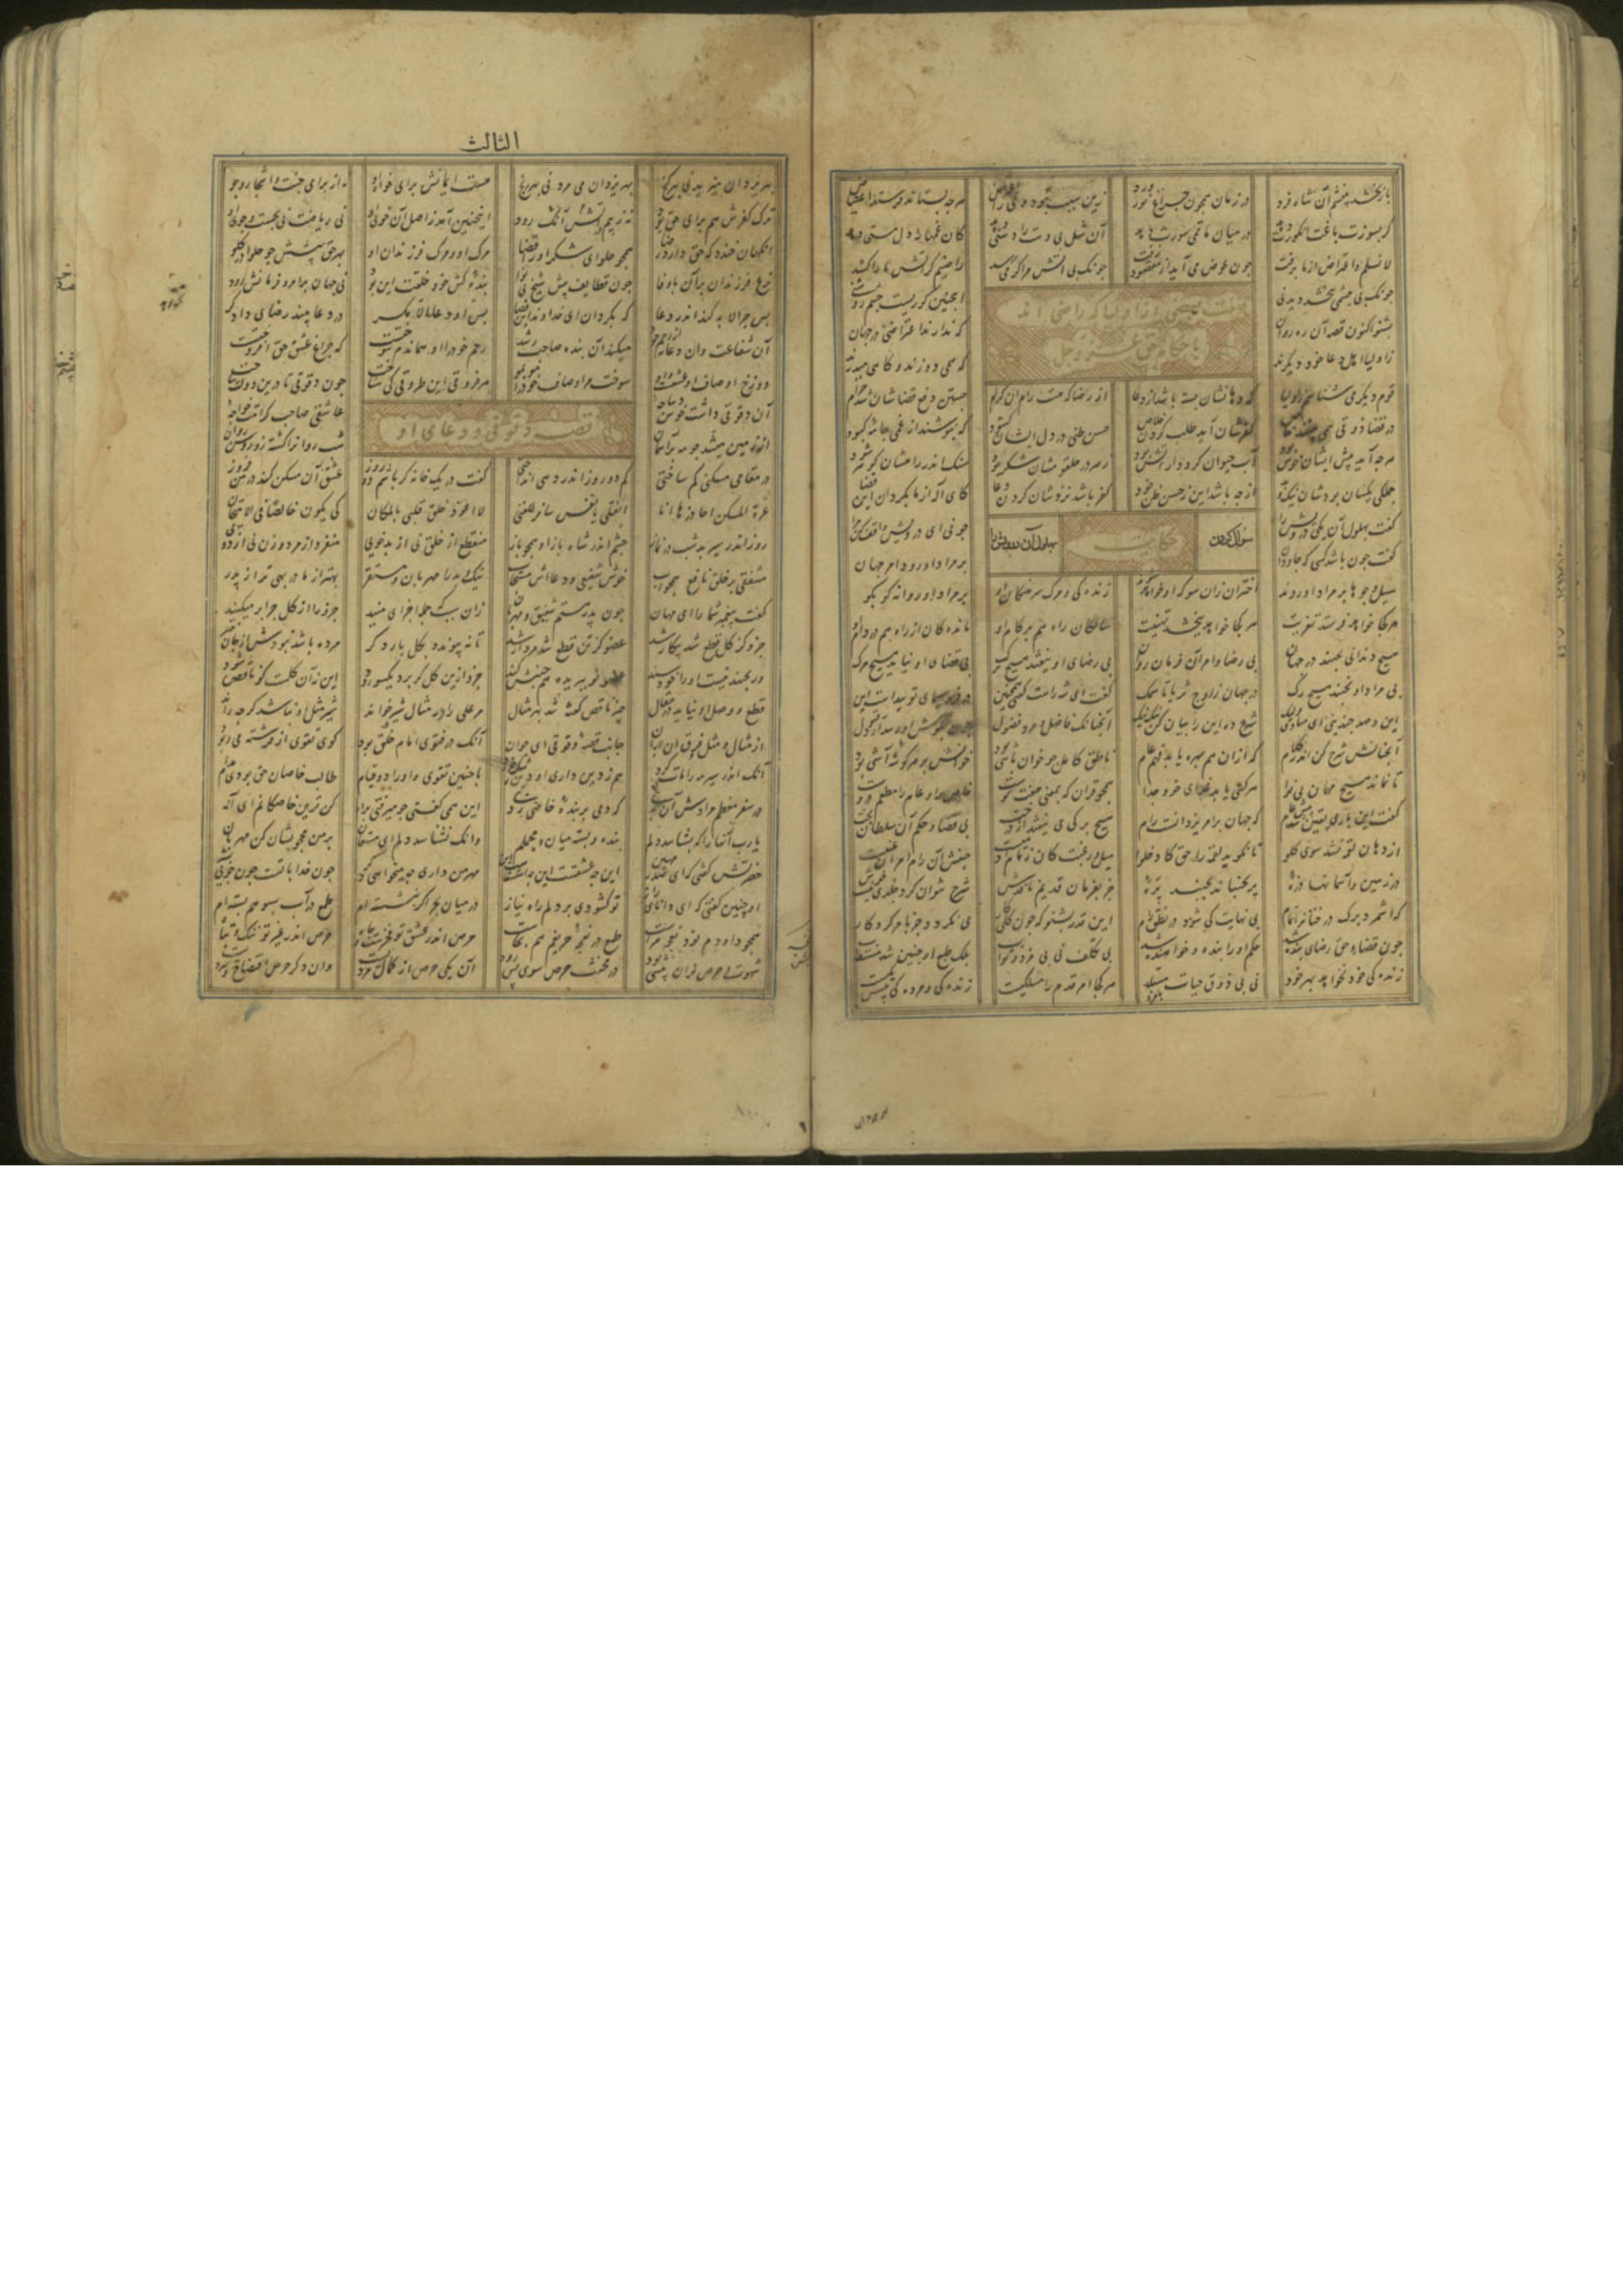 باز بخشد چشم آن شاه فرد در زمان همچون چراغ شب نورد زین سبب نبود ولی را اعتراض هرچه بستاند فرستد اعتیاض
گر بسوزد باغت انگورت دهد در میان ماتمی سورت دهد آن شل بی دست را دستی دهد کان غمها را دل مستی دهد
لا نسلم و اعتراض از ما برفت چون عوض می آید از مفقود زفت چونک بی آتش مرا گرمی رسد راضیم گر آتش ما را کشد
چونک بی چشمی بخشد دیدنی اینچنین کوریست چشم روشنی
صفت بعضی از اولیا که راضی اند
باحکام حق عز و جل
بشنو اکنون قصه آن ره روان که ندارند اعتراضی در جهان
ز اولیا اهل دعا خود دیگرند که همی دوزند و گاهی میدرند
قوم دیگر می شناسم ز اولیا که دهانشان بسته باشد از دعا از رضا که هست رام آن کرام جستن دفع قضاشان شد حرام
در قضا ذوقی همی بینند خاص کفرشان آید طلب کردن خلاص حسن ظنی در دل ایشان گشود که نپوشند از غمی جامه کبود
هرچه آید پیش ایشان خوش بود آب حیوان گردد ار آتش بود زهر در حلقومشان شکر بود سنگ اندر راهشان گوهر بود
جملگی یکسان بودشان نیک و بد از چه باشد این ز حسن ظن خود کفر باشد نزدشان کردن دعا کای اله از ما بگردان این قضا
سؤال کردن حکایت بهلول آن درویش را
گفت بهلول آن یکی درویش را چونی ای درویش واقف کن مرا
گفت چون باشد کسی که جاودان بر مراد او رود امر جهان
سیل و جوها بر مراد او روند اختران زان سو که او خواهد شوند زندگی و مرگ سرهنگان او بر مراد او روانه کو بکو
هر کجا خواهد فرستد تعزیت هر کجا خواهد ببخشد تهنیت سالکان راه هم بر کام او ماندگان از راه هم در دام او
هیچ دندانی نجنبد در جهان بی رضا و امر آن فرمان روان بی رضای او نیفتد هیچ برگ بی قضای او نیاید هیچ مرگ
بی مراد او نجنبد هیچ رگ در جهان ز اوج ثریا تا سمک گفت ای شه راست گفتی همچنین در فر و سیمای تو پیداست این
این و صد چندینی ای صادق ولیک شرح ده این را بیان کن نیک نیک آنچنانک فاضل و مرد فضول چون بگوش او رسد آرد قبول
آنچنانش شرح کن اندر کلام که از آن هم بهره یابد فهم عام ناطق کامل چو خوان باشی بود خوانش بر هر گونه آشی بود
تا نماند هیچ مهمان بی نوا هر کسی یابد غذای خود جدا همچو قرآن که بمعنی هفت توست خاص را و عام را مطعم دروست
گفت این باری یقین شد پیش عام که جهان در امر یزدانست رام هیچ برگی می نیفتد از درخت بی قضا و حکم آن سلطان بخت
از دهان لقمه نشد سوی گلو تا نگوید لقمه را حق کادخلوا میل و رغبت کان زمام آدمیست جنبش آن رام امر آن غنیست
در زمین و آسمانها ذره پر نجنباند نجنبد پره جز بفرمان قدیم نافذش شرح نتوان کرد و جلدی نیست خوش
که شمرد برگ درختان را تمام بی نهایت کی شود در نطق رام این قدر بشنو که چون کلی کار می نگردد جز بامر کردگار
چون قضاء حق رضای بنده شد حکم او را بنده و خواهنده شد بی تکلف نی پی مزد و ثواب بلک طبع او چنین شد مستطاب
زندگی خود نخواهد بهر خود نی پی ذوق حیات مستلذ هر کجا امر قدم را مسلکیست زندگی و مردگی پیشش یکیست
الثالث
بهر یزدان میزید نی بهر گنج بهر یزدان می مرد نی بهر رنج هست ایمانش برای خواست او نه از برای جنت و اشجار و جو
ترک کفرش هم برای حق بود نه ز بیم آنک در آتش رود اینچنین آمد ز اصل آن خوی او نی ریاضت نی بجست و جوی او
آنگهان خندد که حق دارد رضا همچو حلوای شکر او را قضا مرگ او و مرگ فرزندان او بهر حق پیشش چو حلوا در گلو
نزع فرزندان بر آن باوفا چون قطایف پیش شیخ بی نوا بنده کش خوی و خلقت این بود نی جهان بر امر و فرمانش رود
پس چرا لابه کند او در دعا که بگردان ای خداوند این قضا پس او دعا در دعا بیند رضای دادگر
آن شفاعت وان دعا نه از رحم خود میکند آن بنده صاحب رشد رحم خود را او همان دم سوخت که چراغ عشق حق افروخت
دوزخ اوصاف او عشقست و او سوخت مر اوصاف خود را مو بمو هر طروقی این فروقی کی شناخت چون دقوقی تا درین دولت بتاخت
قصه دقوقی و دعای او
آن دقوقی داشت خوش دیباجه عاشق صاحب کرامت خواجه
بر زمین میشد چو مه بر آسمان شب روان را گشته زو روشن روان
در مقامی مسکنی کم ساختی کم دو روز اندر دهی انداختی گفت در یک خانه گر باشم دو روز عشق آن مسکن کند در من فروز
غرة المسکن احاذرها انا انقلی یا نفس سافر للغنی لا اعود خلق قلبی بالمکان کی یکون خالصا فی الامتحان
روز اندر سیر بد شب در نماز چشم اندر شاه باز او همچو باز منقطع از خلق نی از بد خویی منفرد از مرد و زن نی از دوی
مشفقی بر خلق نافع همچو آب خوش شفیعی و دعااش مستجاب نیک و بد را مهربان و مستقر بهتر از مادر بهی تر از پدر
گفت پیغمبر شما را ای مهان چون پدر هستم شفیق و مهربان زان سبب که جمله اجزای منید جزو را از کل چرا بر میکنید
جزو کز کل قطع شد بیکار شد عضو کز تن قطع شد مردار شد تا نه پیوندد بکل بار دگر مرده باشد نبودش از جان خبر
ور بجنبد نیست او را خود سند عضو نو ببریده هم جنبش کند جزو ازین کل گر برد یکسو رود این نه آن کلست کو ناقص شود
قطع و وصل او نیاید در مقال چیز ناقص گفته شد بهر مثال مر علی را در مثال شیر خواند شیر مثل او نباشد گرچه راند
از مثال و مثل فرق آن بران جانب قصه دقوقی ای جوان آنک در فتوی امام خلق بود گوی تقوی از فرشته می ربود
آنک اندر سیر مه را مات کرد هم ز دین داری او دین رشک خورد با چنین تقوی و اوراد و قیام طالب خاصان حق بودی مدام
در سفر معظم مرادش آن بدی که دمی بر بنده خاصی زدی این همی گفتی چو میرفتی براه کن قرین خاصگانم ای اله
یا رب آنها را که بشناسد دلم بنده و بسته میان و مجملم وانک نشناسد دلم ای مستعان بر من محجوبشان کن مهربان
حضرتش گفتی که ای صدر مهین این چه عشقست این چه استسقاست این مهر من داری چه میجویی دگر چون خدا با تست چون جویی بشر
او چنین گفتی که ای دانای راز تو گشودی بر دلم راه نیاز در میان بحر اگر بنشسته ام طمع در آب سبو هم بسته ام
همچو داودم نود نعجه مراست طمع در نعجه حریفم هم بخاست حرص اندر عشق تو فخرست و جاه حرص اندر غیر تو ننگ و تباه
شهوت و حرص نران پیشی بود در مخنث حرص سوی پس رود آن یکی حرص از کمال مردیست وان دگر حرص افتضاح و سردیست